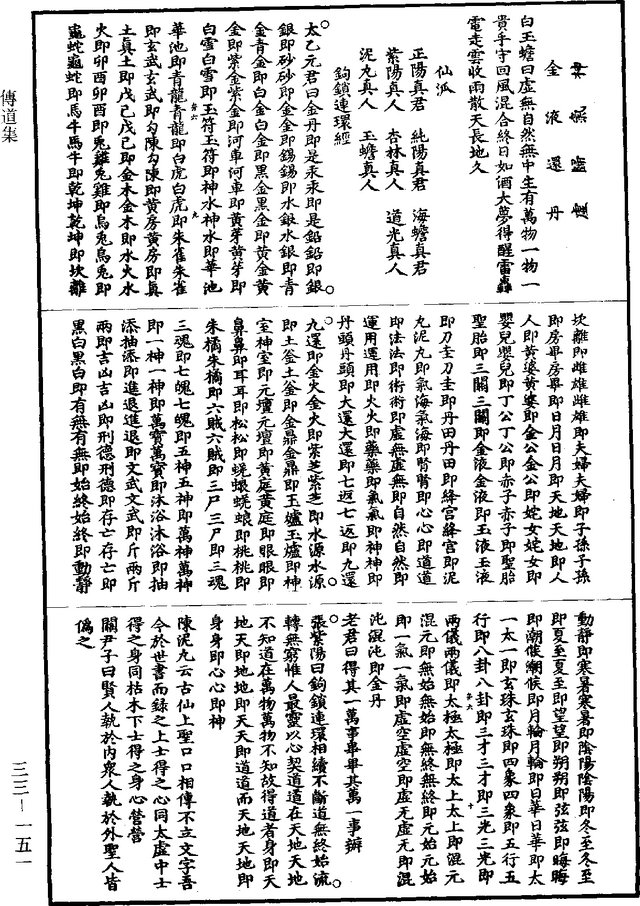 金液還丹
白玉蟾曰虛無自然無中生有萬物一物一
貴手守回風混合終日如酒大夢得醒雷轟
電走雲收雨散天長地久
仙派
正陽真君　純陽真君　海蟾真君
紫陽真人　杏林真人　道光真人
泥丸真人　玉蟾真人
鉤鎖連環經
太乙元君曰金丹即是汞汞即是鉛鉛即銀
銀即砂砂即金金即錫錫即水銀水銀即青
金青金即白金白金即黑金黑金即黃金黃
金即紫金紫金即河車河車即黃芽黃芽即
白雪白雪即玉符玉符即神水神水即華池
華池即青龍青龍即白虎白虎即朱雀朱雀
即玄武玄武即勾陳勾陳即黃房黃房即真
土真土即戊己戊己即金木金木即水火水
火即卯酉卯酉即兔雞兔雞即烏兔烏兔即
龜蛇龜蛇即馬牛馬牛即乾坤乾坤即坎離
坎離即雌雄雌雄即夫婦夫婦即子孫子孫
即房畢房畢即日月日月即天地天地即人
人即黃婆黃婆即金公金公即姹女姹女即
嬰兒嬰兒即丁公丁公即赤子赤子即聖胎
聖胎即三關三關即金液金液即玉液玉液
即刀圭刀圭即丹田丹田即絳宮絳宮即泥
丸泥丸即氣海氣海即腎腎即心心即道道
即法法即術術即虛無虛無即自然自然即
運用運用即火火即藥藥即氣氣即神神即
丹頭丹頭即大還大還即七返七返即九還
九還即金火金火即紫芝紫芝即水源水源
即土釜土釜即金鼎金鼎即玉爐玉爐即神
室神室即元壇元壇即黃庭黃庭即眼眼即
鼻鼻即耳耳即松松即蜣蜋蜣蜋即桃桃即
朱橘朱橘即六賊六賊即三尸三尸即三魂
三魂即七魄七魄即五神五神即萬神萬神
即一神一神即萬寶萬寶即沐浴沐浴即抽
添抽添即進退進退即文武文武即斤兩斤
兩即吉凶吉凶即刑德刑德即存亡存亡即
黑白黑白即有無有無即始終始終即動靜
動靜即寒暑寒暑即陰陽陰陽即冬至冬至
即夏至夏至即望望即朔朔即弦弦即晦晦
即潮候潮候即月輪月輪即日華日華即太
一太一即玄珠玄珠即四象四象即五行五
行即八卦八卦即三才三才即三光三光即
兩儀兩儀即太極太極即太上太上即混元
混元即無始無始即無終無終即元始元始
即一氣一氣即虛空虛空即虛无虛无即混
沌混沌即金丹
老君曰得其一萬事畢畢其萬一事辦
張紫陽曰鉤鎖連環相續不斷道無終始流
轉無窮惟人最靈以心契道道在天地天地
不知道在萬物萬物不知故得道者身即天
地天即地地即天天即道道而天地天地即
身身即心心即神
陳泥丸云古仙上聖口口相傳不立文字吾
今於世書而錄之上士得之心同太虛中士
得之身同枯木下士得之身心營營
關尹子曰賢人執於內衆人執於外聖人皆
偽之
傳道集
三三－一五一